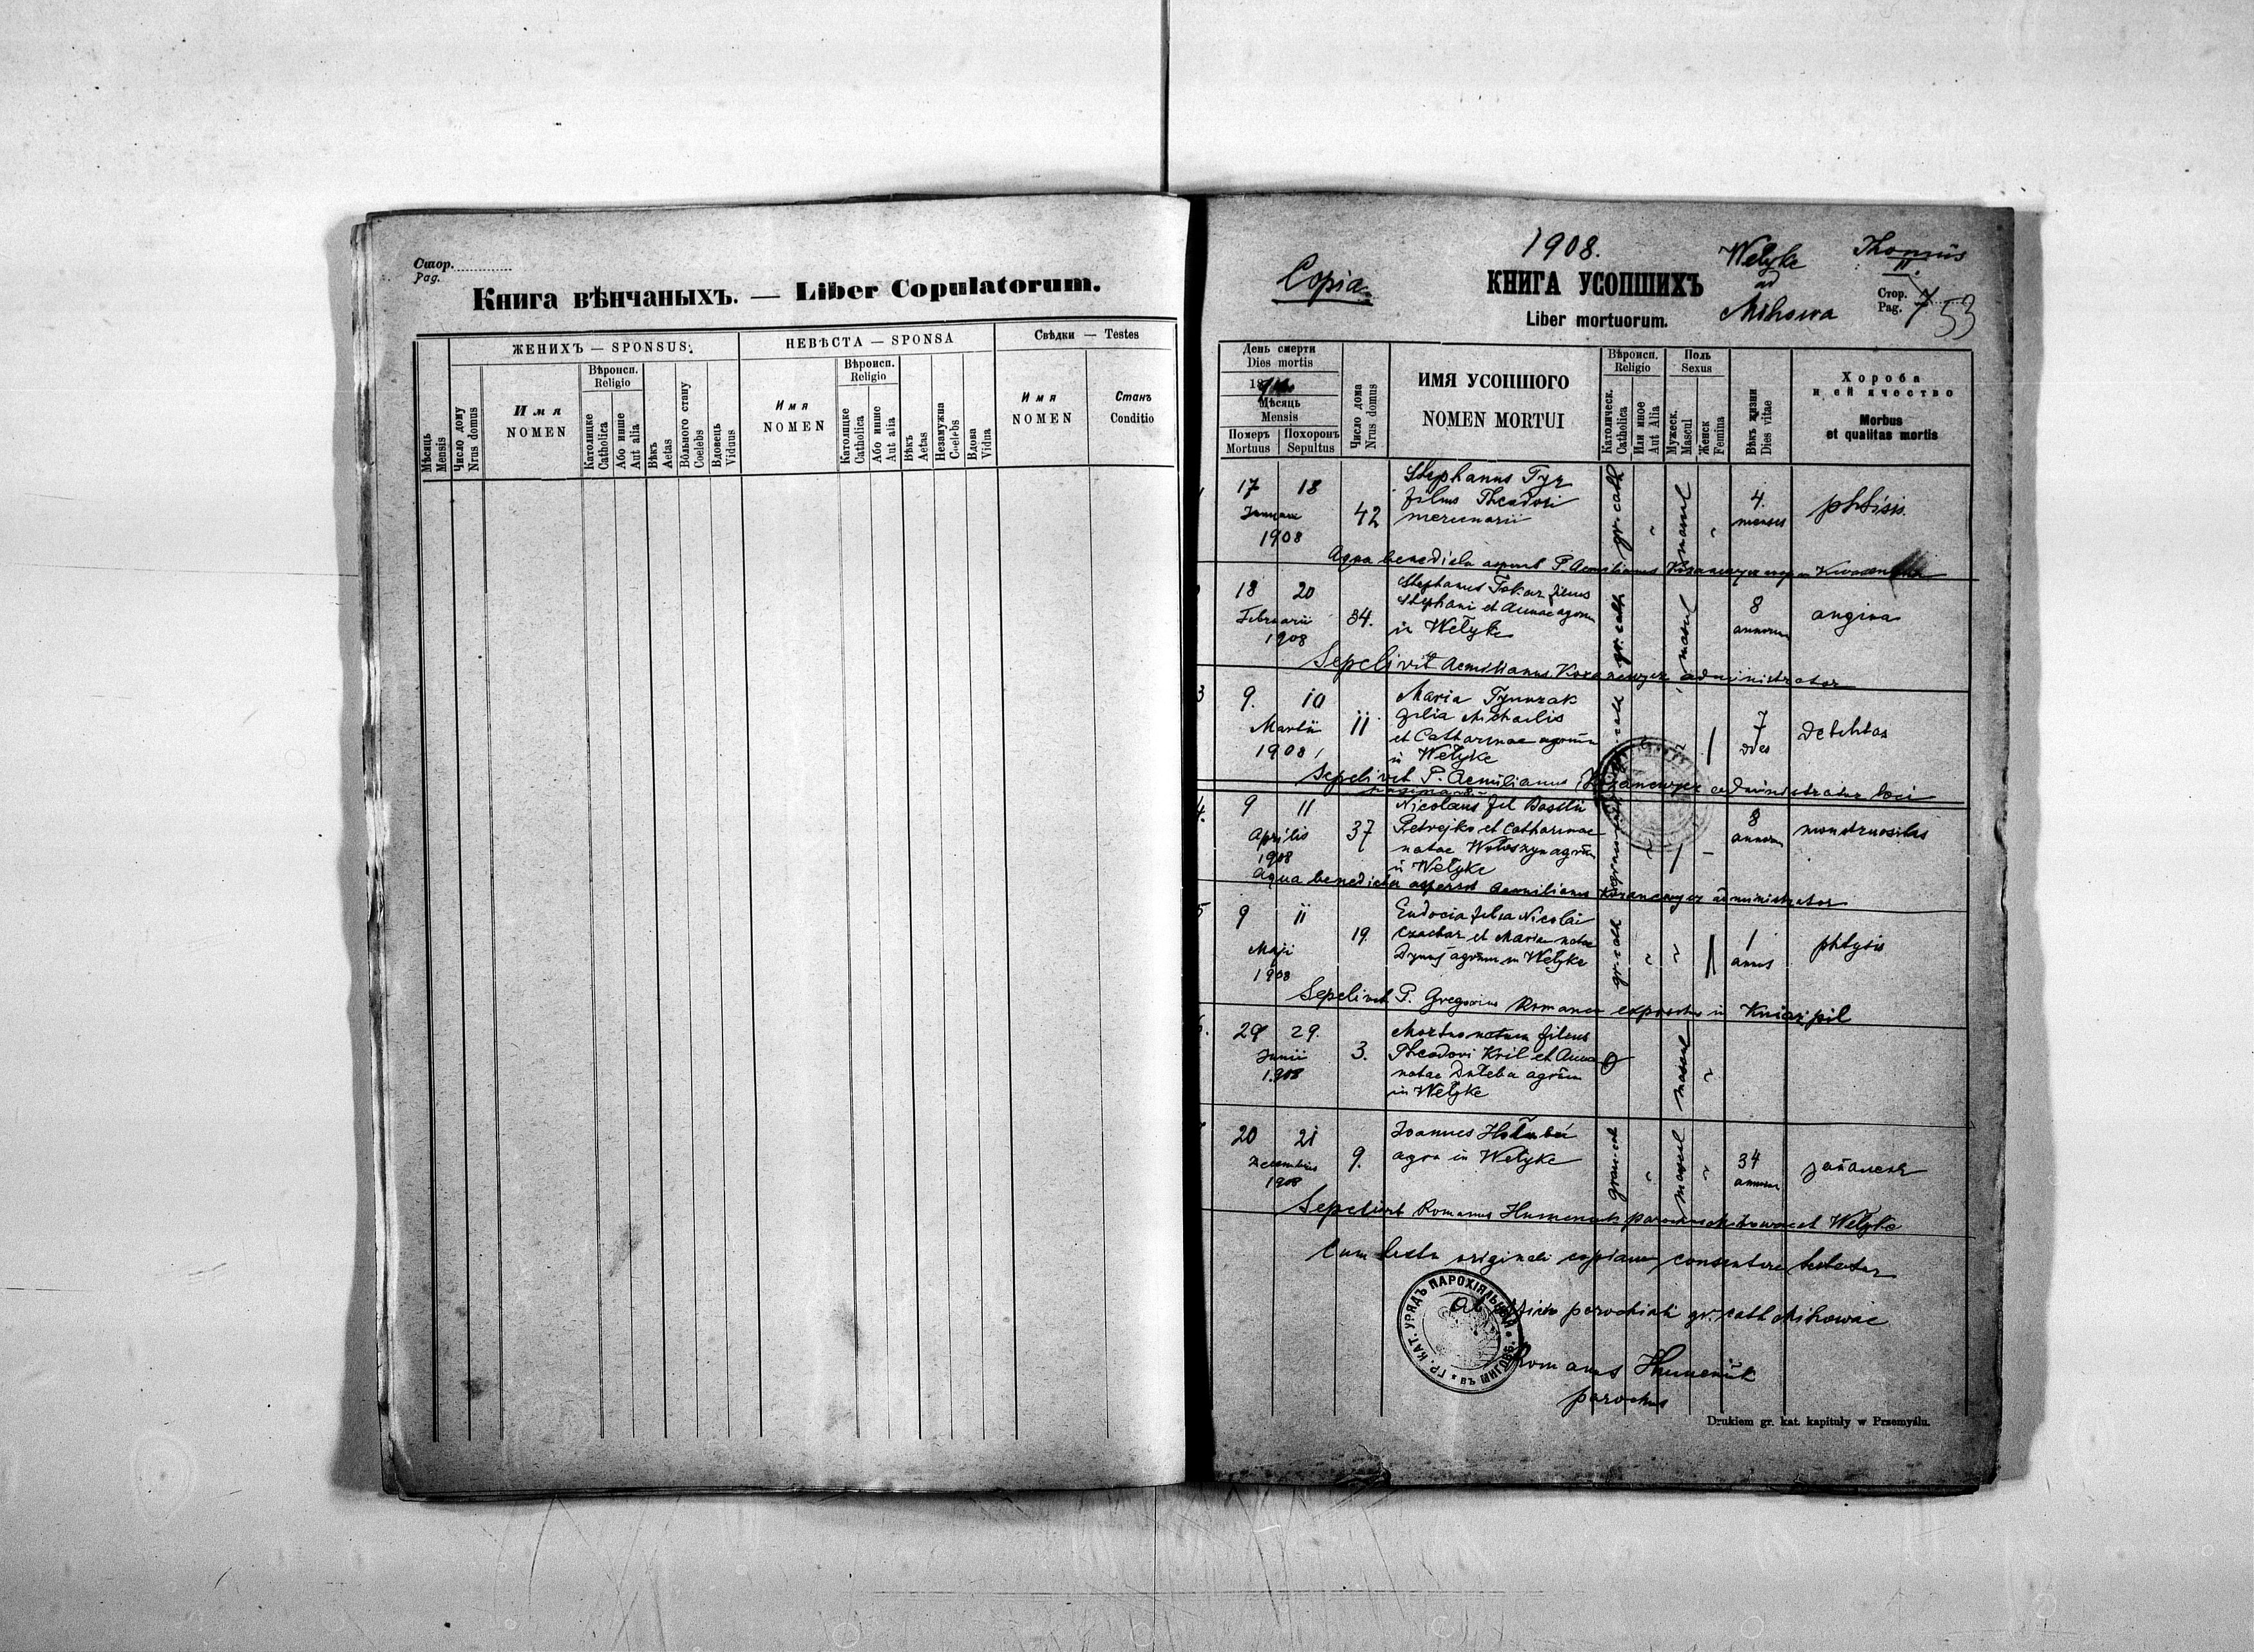 Стор.
Pag.
Книга вѣнчаныхъ. — Liber Copulatorum.
Мѣсяць
Mensis
ЖЕНИХЪ — SPONSUS.
Число дому
Nrus domus
Имя
NOMEN
Вѣроисп.
Religio
Католицке
Catholica
Або инше
Aut alia
Вѣкъ
Aetas
Вôльного стану
Coelebs
Вдовець
Viduus
НЕВѢСТА — SPONSA
Имя
NOMEN
Вѣроисп.
Religio
Католицке
Catholica
Або инше
Aut alia
Вѣкъ
Aetas
Незамужна
Coelebs
Вдова
Vidua
Свѣдки — Testes
Имя
NOMEN
Станъ
Conditio
1908.
Copia
КНИГА УСОПШИХЪ
Liber mortuorum.
Wełyke
ad
Mihowa
II.
Стор.
Pag. 7
53
День смерти
Dies mortis
Мѣсяць
Mensis
Померъ
Mortuus
Похоронъ
Sepultus
Число дома
Nrus domus
ИМЯ УСОПШОГО
NOMEN MORTUI
Вѣроисп.
Religio
Католическ.
Catholica
Или иное
Aut Alia
Полъ
Sexus
Мужеск.
Mascul
Женск
Femina
Вѣкъ жизни
Dies vitae
Хороба
и ей ячество
Morbus
et qualitas mortis
17 18 42 Stephanus Tyz
filius Theodori
mercenarii
1908
gr. cath
mascul
4 menses
phtisis
Aqua benedicta P. Aemilianus
18 20 34. Stephanus Tokar filius
Stephani et Annae agron
in Wełyke
Februarii
1908
gr. cath
mascul
8 annorum
angina
Sepelivit Aemilianus administrator
3 9. 10 11 Maria
filia Michaelis
et Catharinae agron
in Wełyke
Martii
1908
7 dies
debilitas
Sepelivit P. Aemilianus administrator loci
4. 9 11 37 Nicolaus fil Basilii
Petrejko et Catharinae
natae Wołoszyn agron
in Wełyke
Aprilis
1908
8 annorum
monstruositas
Aqua benedicta aspersit Aemilianus administrator
5 9 11 19. Eudocia filia Nicolai
et Mariae natae
agron in Wełyke
Maji
1908
gr. cath
1 annus
phtysis
Sepelivit P. Gregorius in Kniazpil
29 29. 3. Mortuo natum filius
Theodori Kril et Anna
natae Duleba agron
in Wełyke
Junii
1908
mascul
20 21 9. Joannes
agr in Wełyke
Decembris
1908
mascul
34 annorum
Sepelivit Romanus Humeniuk parochus et Wełyke
Cum textu originali copiam consentire testatur
ГР. КАТ. УРЯДЪ ПАРОХІЯЛЬНЫЙ
Ab officio parochiali gr. cath Mihowae
Romanus Humeniuk
parochus
Drukiem gr. kat. kapituły w Przemyślu.